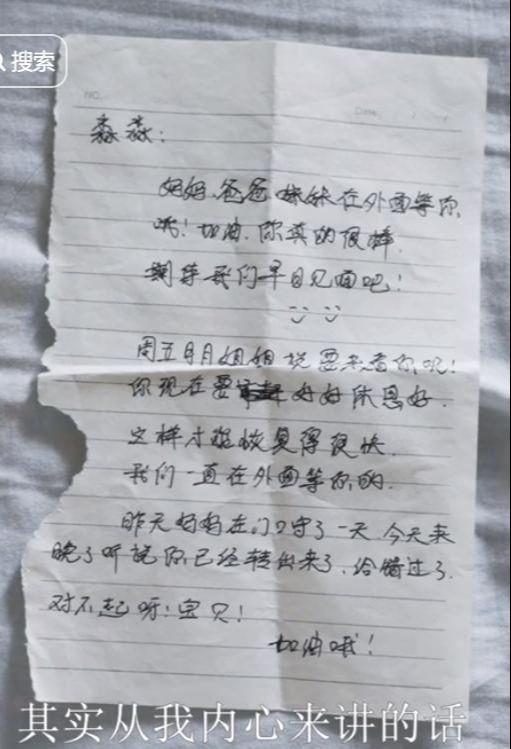 搜索
NO.
Date: / /
淼淼：
妈妈、爸爸、妹妹在外面等你
哦！加油，你真的很棒，
期待我们早日见面吧！
周五月月姐姐说要来看你呢！
你现在要好好休息好，
这样才能恢复得很快，
我们一直在外面等你的，
昨天妈妈在门口守了一天，今天来
晚了听说你已经转出来了，给错过了，
对不起呀！宝贝！
加油哦！
其实从我内心来讲的话